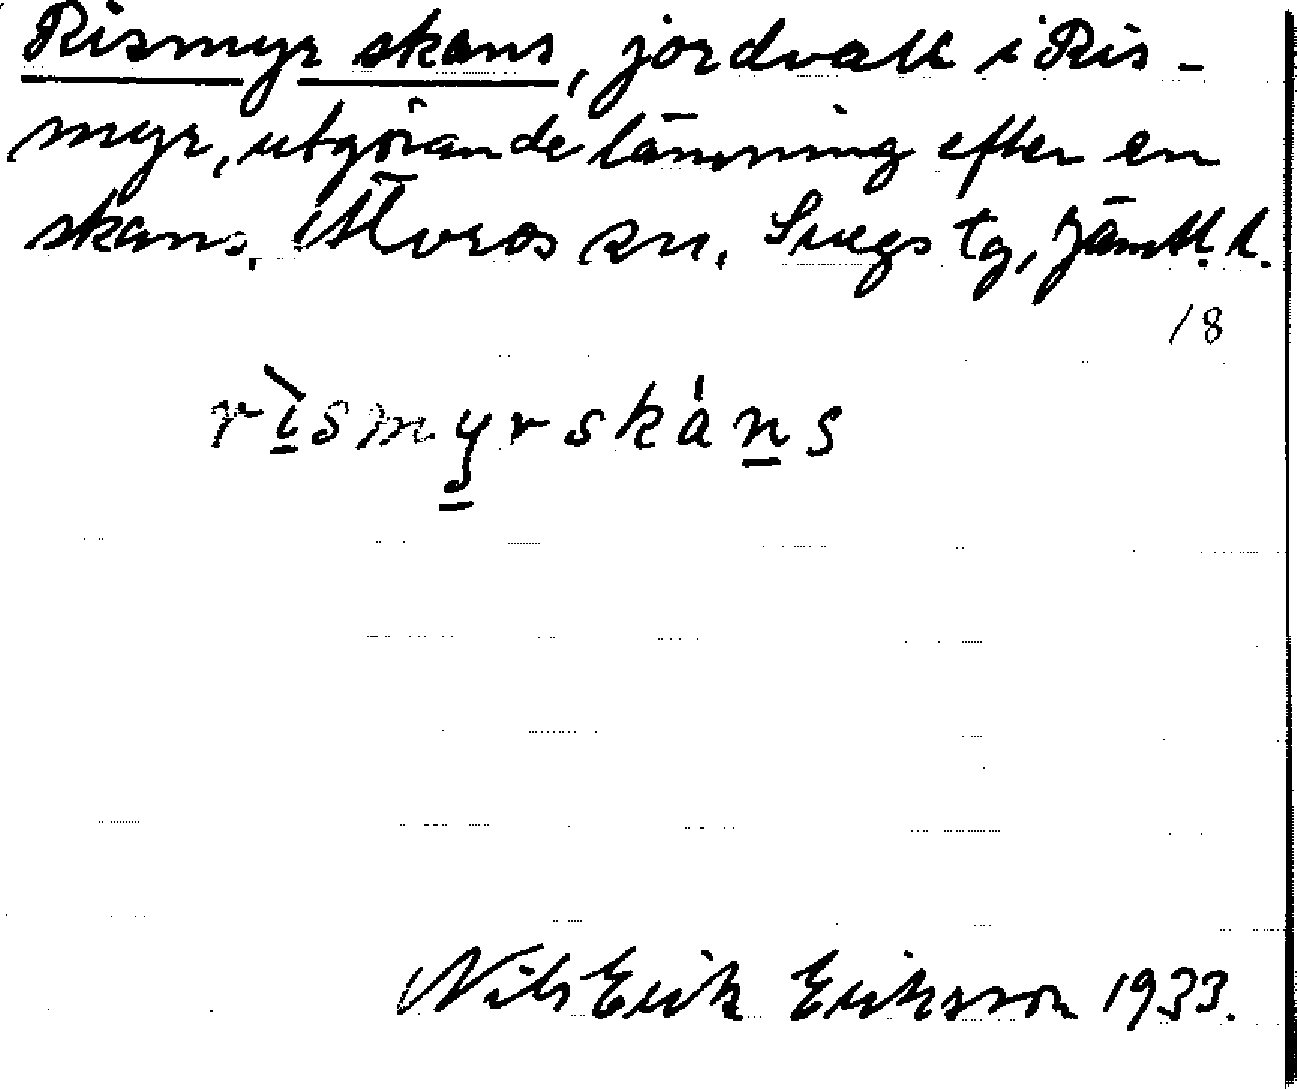 Rismyr skans, jordvall i Ris-
myr, utgörande lämning efter en
skans. Älvros sn, Svegs tg, Jämtl. l.
/8
rìsmyrskáns
Nils Erik Eriksson 1933.